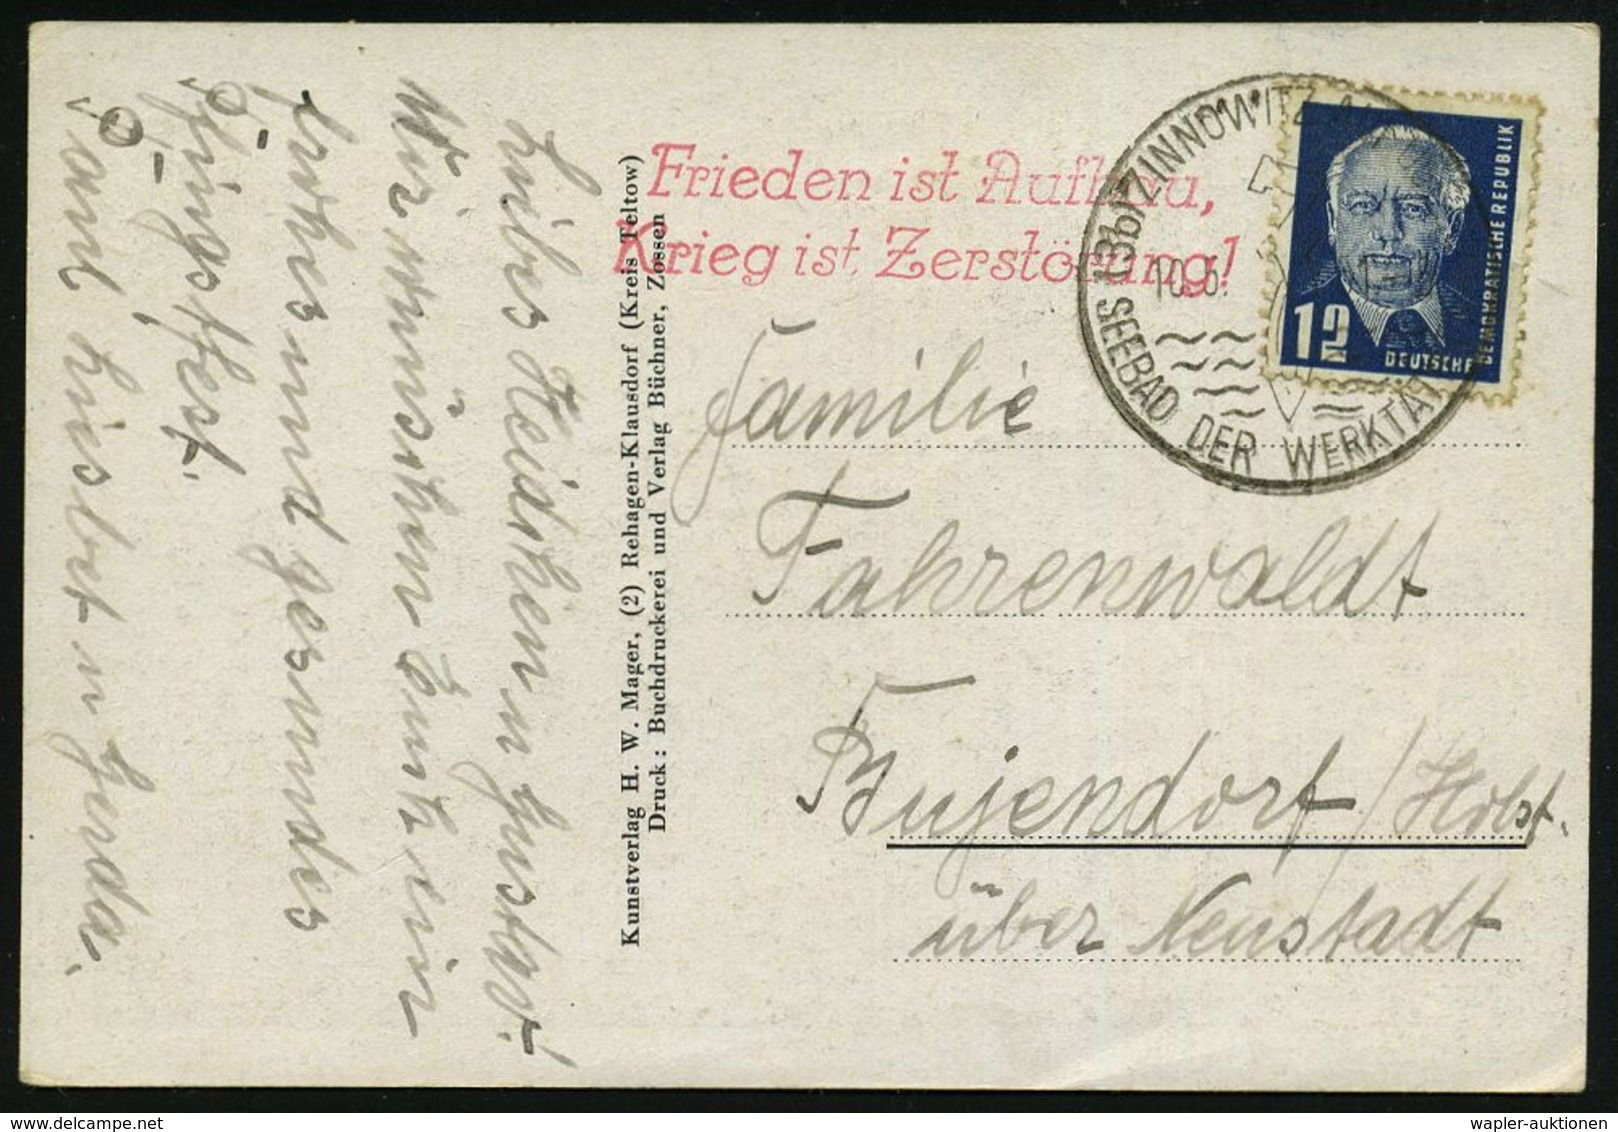 Liebes Heidchen u Gustav!
Wir wünschen Euch ein
frohes und gesundes
Pfingstfest.
Tante Lisbet u Gerda.
Kunstverlag H. W. Mager, (2) Rehagen-Klausdorf (Kreis Teltow)
Druck: Buchdruckerei und Verlag Büchner, Zossen
Frieden ist Aufbau,
Krieg ist Zerstörung!
(3b) ZINNOWITZ
SEEBAD DER WERKTÄT
12
DEUTSCHE
DEMOKRATISCHE REPUBLIK
Familie
Fahrenwaldt
Bujendorf / Holst.
über Neustadt
wapler-auktionen